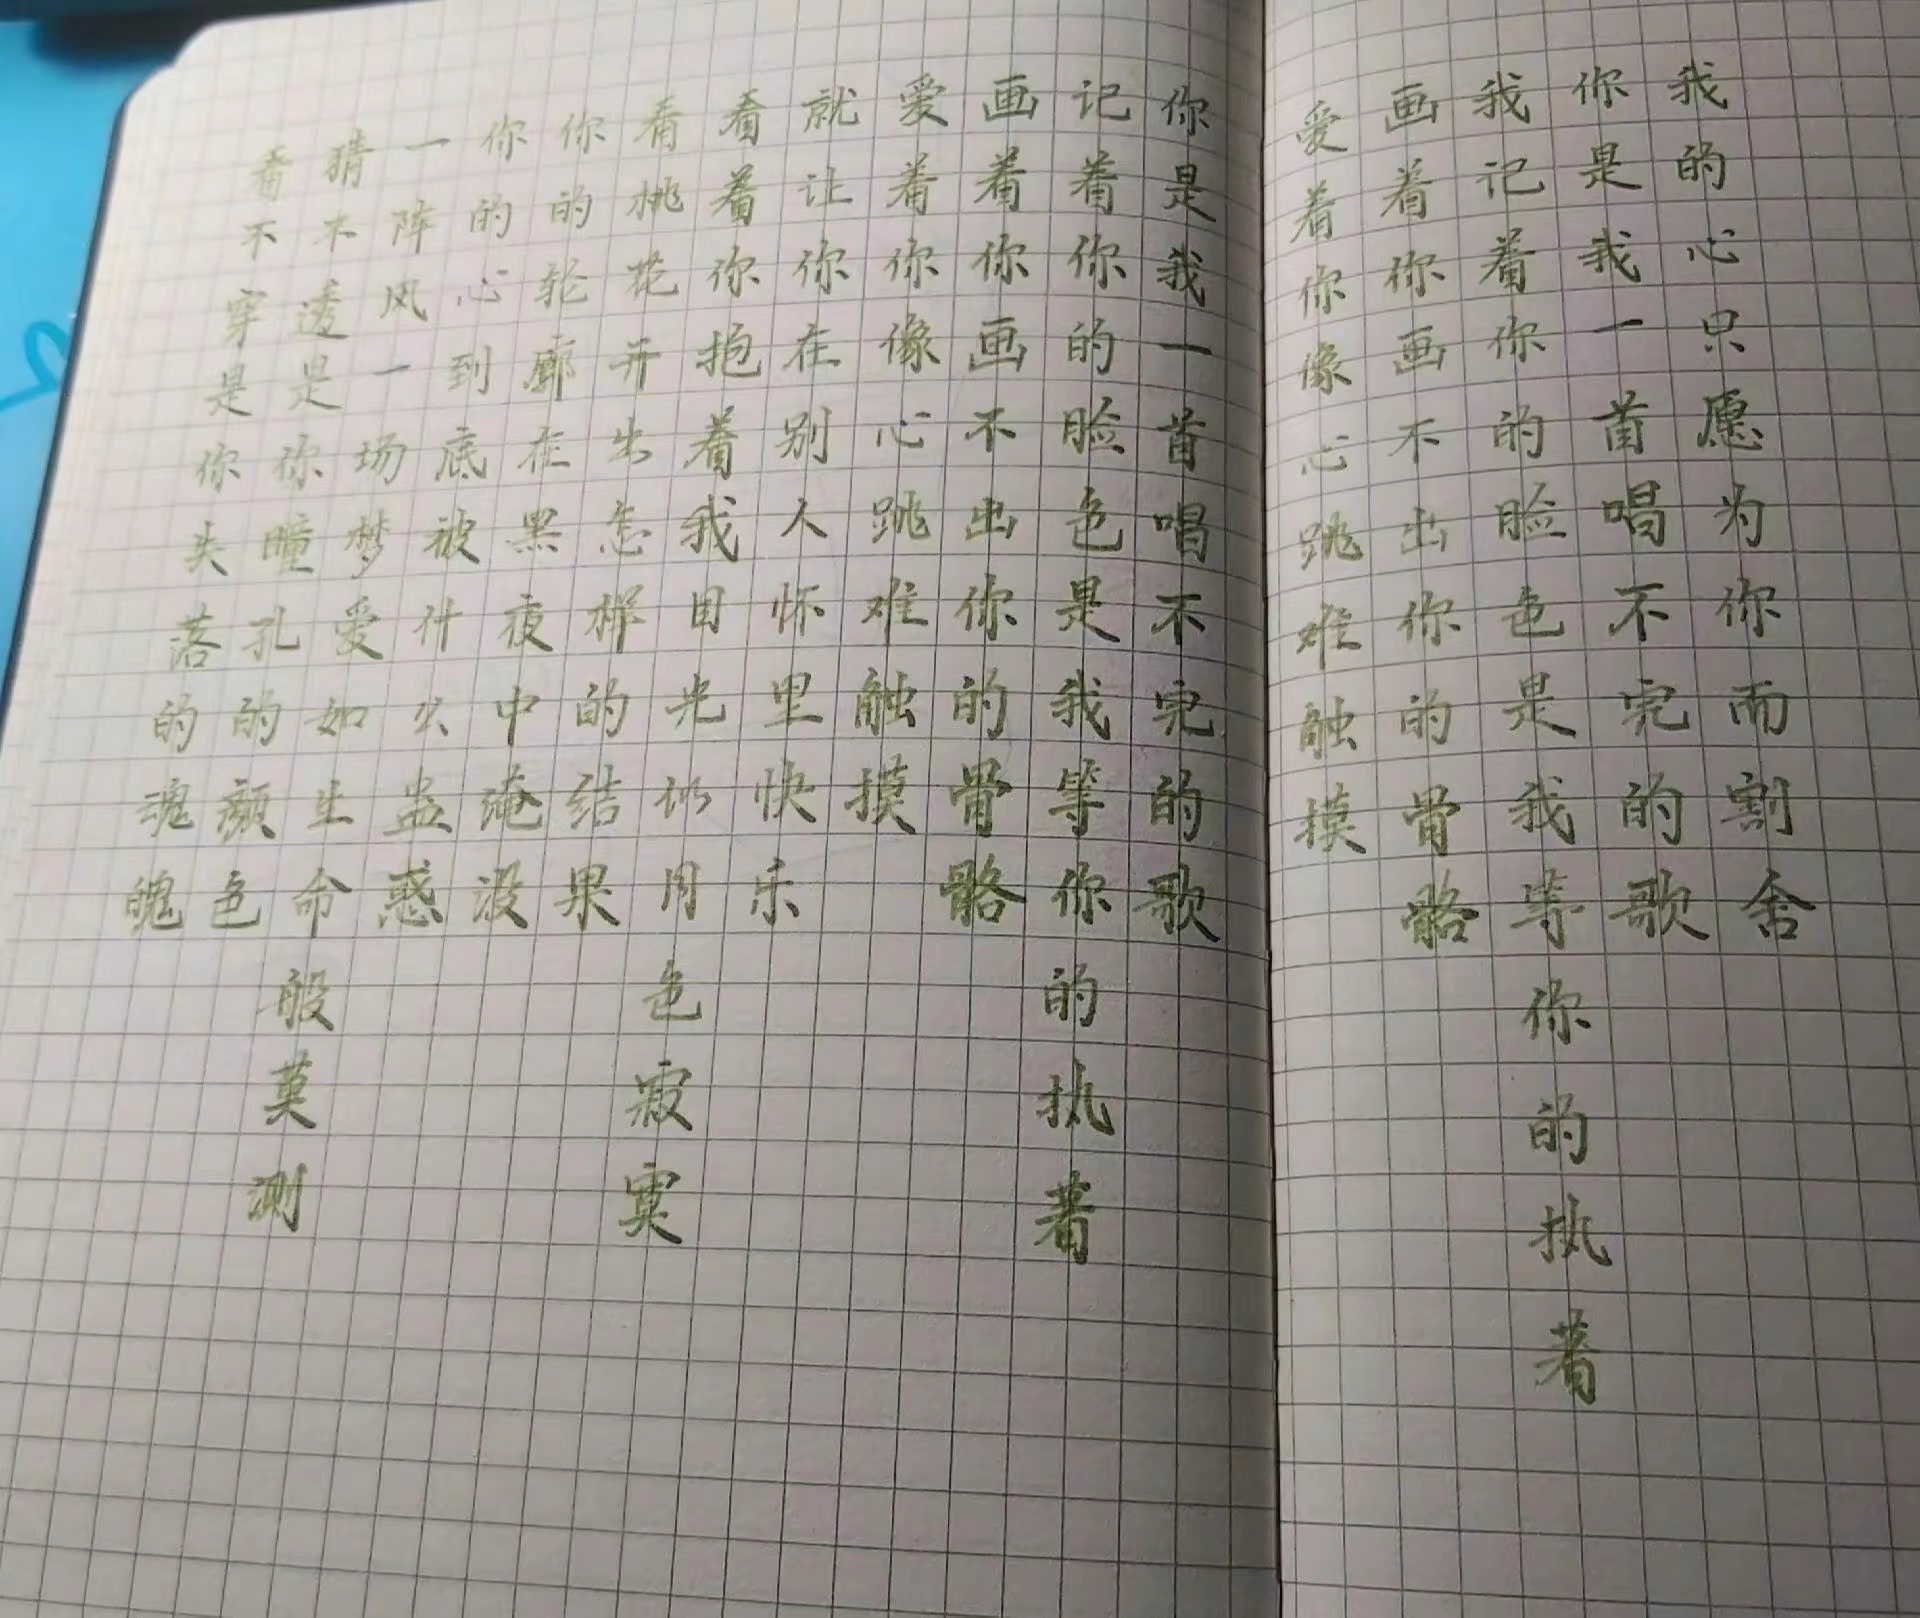 看不穿是你失落的魂魄
猜不透是你瞳孔的颜色
一阵风一场梦爱如生命般莫测
你的心到底被什么蛊惑
你的轮廓在黑夜中淹没
看桃花开出怎样的结果
看着你抱着我目光似月色寂寞
就让你在别人怀里快乐
爱着你像心跳难触摸
画着你画不出你的骨骼
记着你的脸色是我等你的执著
你是我一首唱不完的歌
爱着你像心跳难触摸
画着你画不出你的骨骼
我记着你的脸色是我等你的执著
你是我一首唱不完的歌
我的心只愿为你而割舍